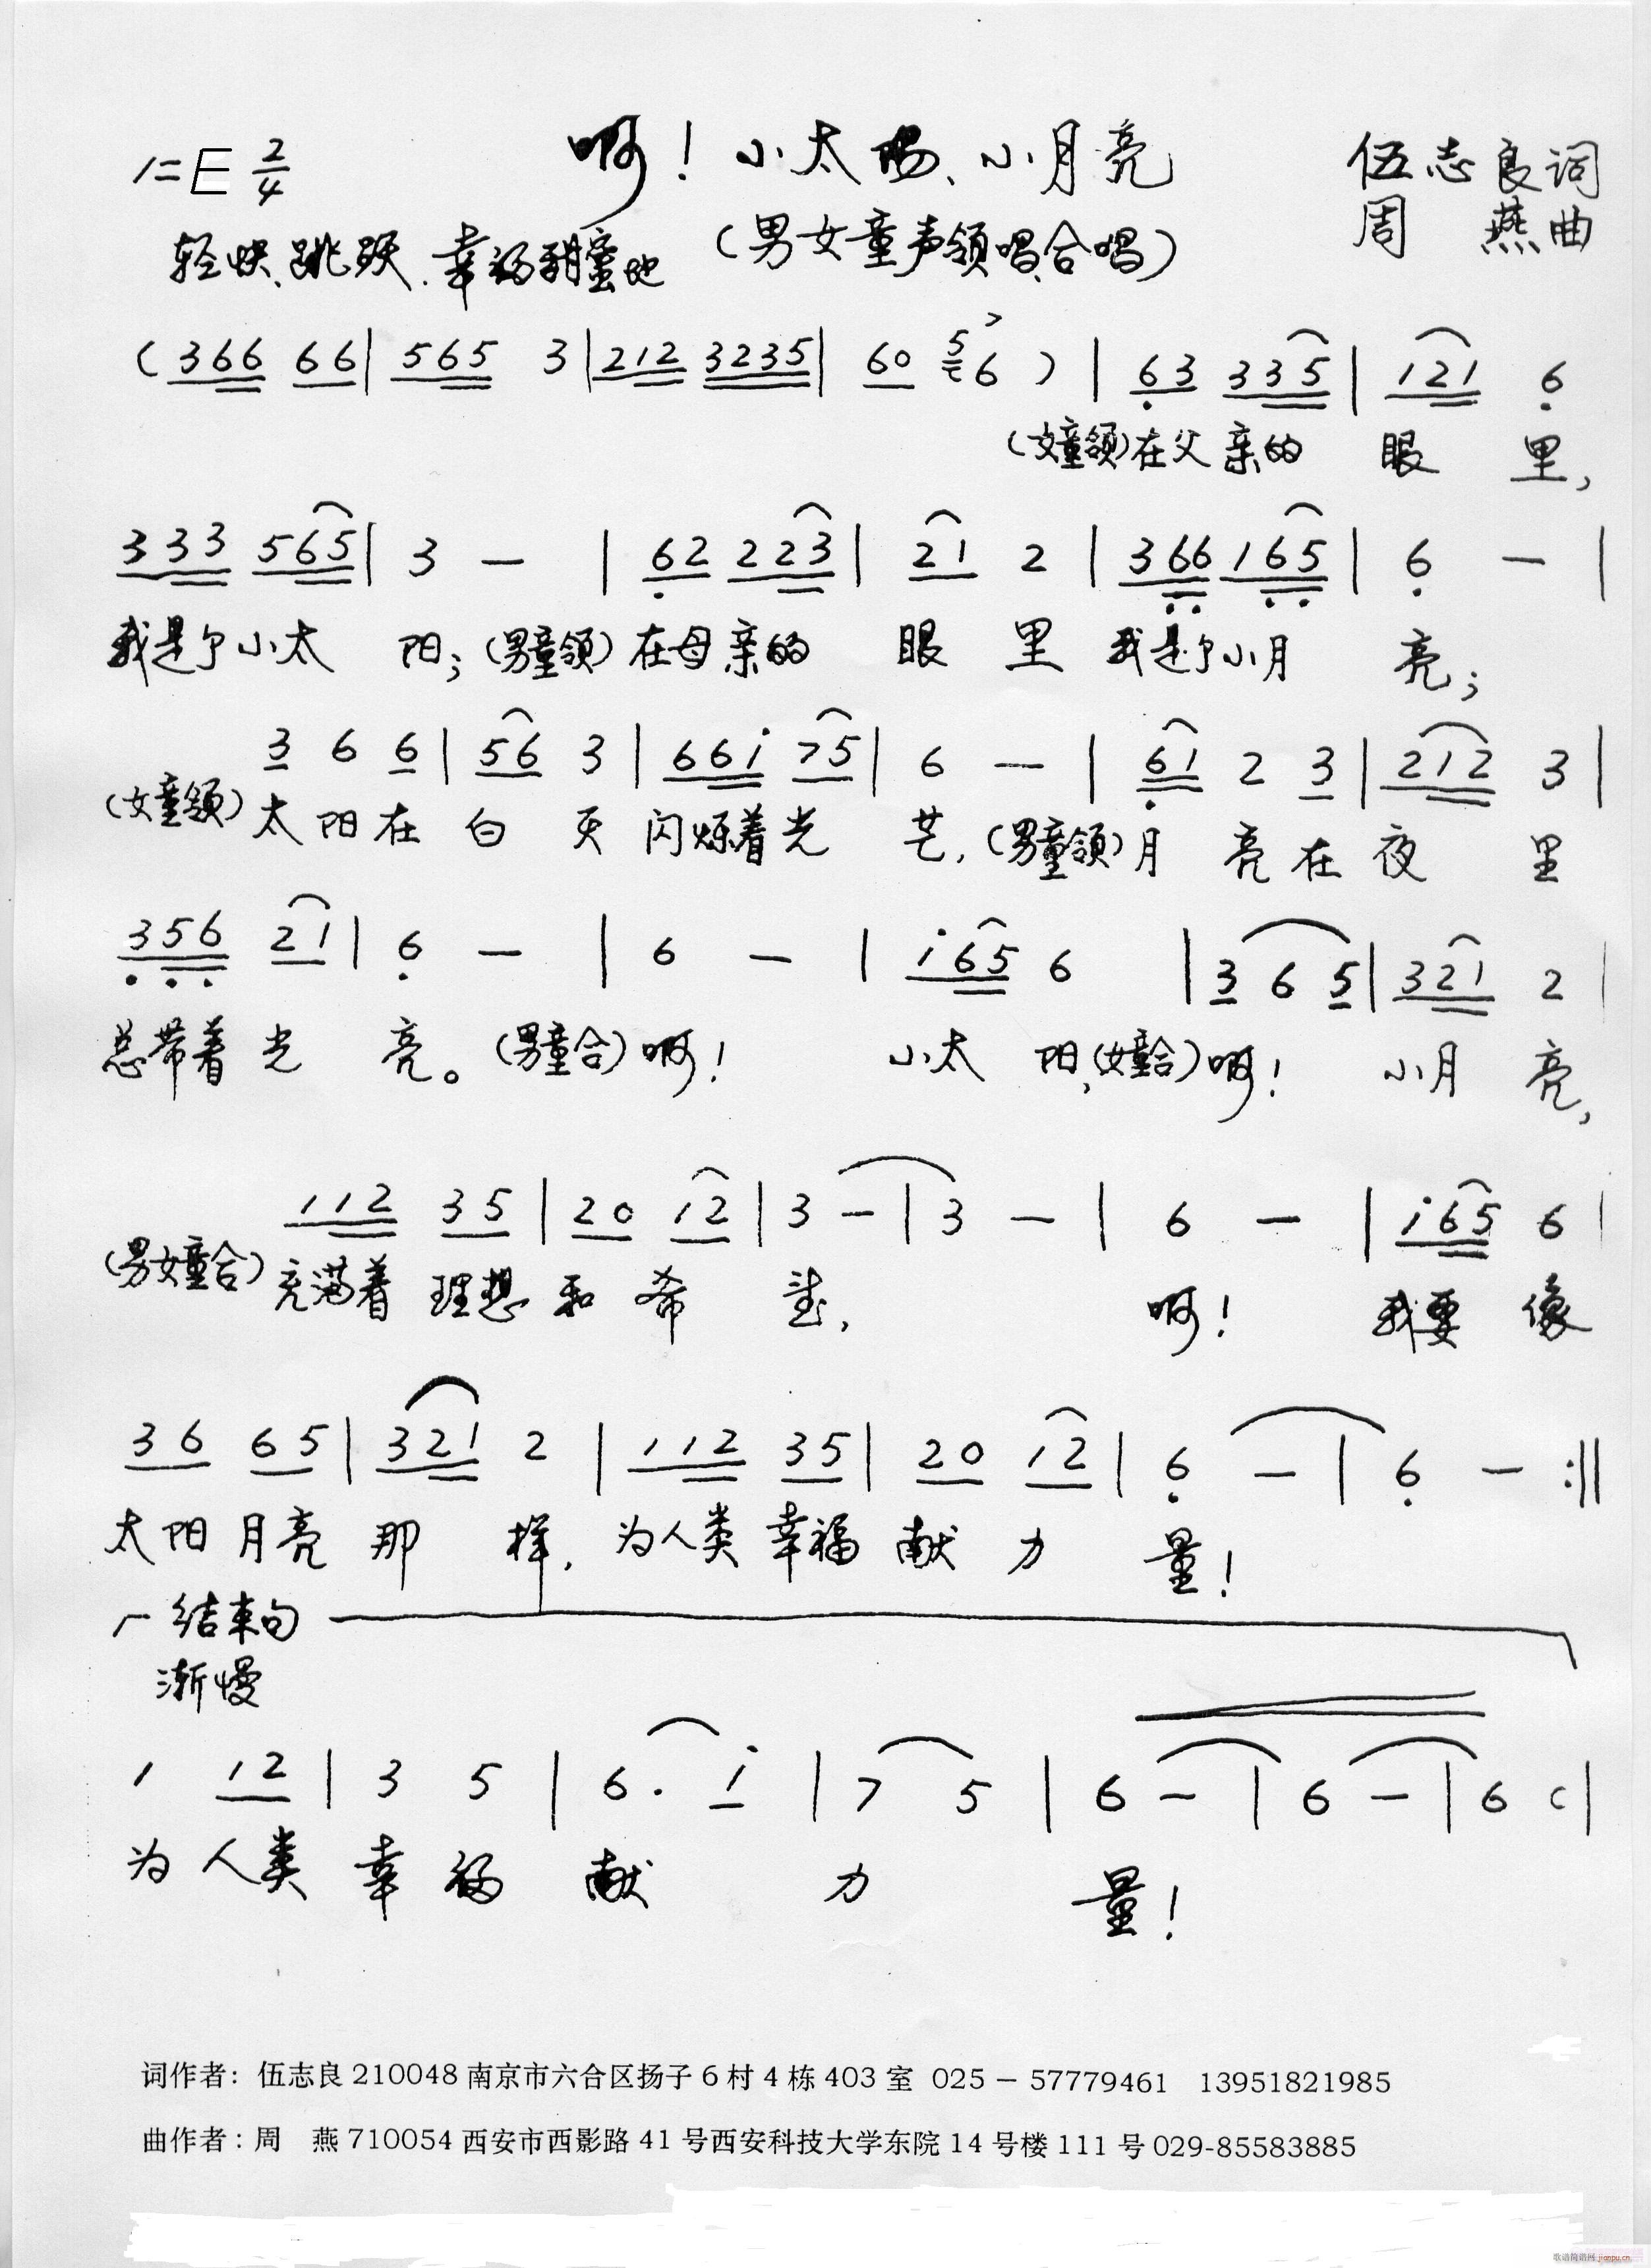 1=E 2/4 啊！小太阳、小月亮 伍志良词
轻快、跳跃、幸福甜蜜地 (男女童声领唱、合唱) 周 燕曲
(366 66| 565 3|212 3235| 60 56 )| 63 335| 121 6
(女童领)在父亲的 眼 里,
333 565| 3 — | 62 223| 21 2 | 366 165| 6 — |
我是个小太 阳;(男童领)在母亲的 眼 里 我是个小月 亮;
3 6 6 | 56 3 | 661 75| 6 — | 61 2 3 | 212 3 |
(女童领)太阳在 白 天 闪烁着光 芒,(男童领)月 亮在夜 里
356 21| 6 — | 6 — | 165 6 | 3 6 5| 321 2 |
总带着 光 亮。(男童合)啊! 小太 阳,(女童合)啊! 小月 亮,
112 35 | 20 12 | 3 — | 3 — | 6 — | 165 6 |
(男女童合)充满着 理想 和 希 望, 啊! 我要 像
36 65| 321 2 | 112 35| 20 12 | 6 — | 6 — :||
太阳 月亮 那 样, 为人类 幸福 献 力 量!
结束句
渐慢
1 12 | 3 5 | 6. 1 | 7 5 | 6 — | 6 — | 6 0 |
为 人类 幸 福 献 力 量!
词作者：伍志良 210048 南京市六合区扬子 6 村 4 栋 403 室 025－57779461 13951821985
曲作者：周 燕 710054 西安市西影路 41 号西安科技大学东院 14 号楼 111 号 029-85583885
歌谱简谱网 jianpu.cn